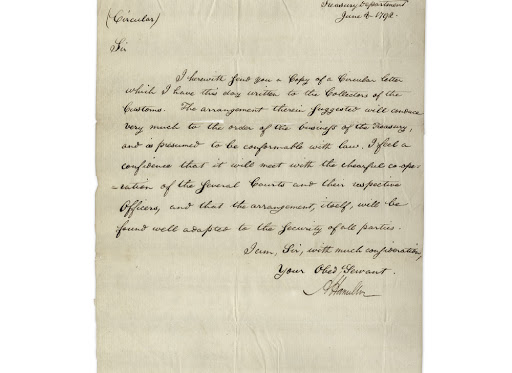 Treasury Department
(Circular)
June 8. 1792.
Sir
I herewith send you a Copy of a Circular letter
which I have this day written to the Collectors of the
Customs. The arrangement therein suggested will conduce
very much to the order of the business of the Treasury,
and is presumed to be conformable with law. I feel a
confidence that it will meet with the chearful co-ope-
ration of the several Courts and their respective
Officers, and that the arrangement, itself, will be
found well adapted to the Security of all parties.
I am, Sir, with much consideration,
Your Obed. Servant.
A Hamilton